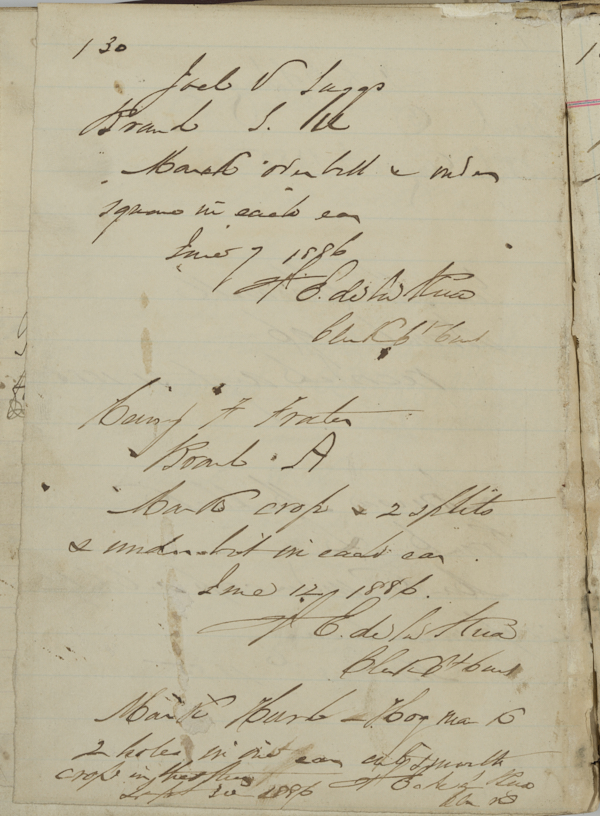 130
Joel V Suggs
Brand S. M
Mark over bill & under
square in each ear
June 7 1886
H. E. de la Rua
Clerk Ct Court
Henry F Frater
Brand A
Mark crop & 2 splits
& under bit in each ear.
June 12 1886.
H E. de la Rua
Clerk Ct Court
Mark Hog mark
2 holes in one ear
crop in the other H E de la Rua
Sept 30 1886